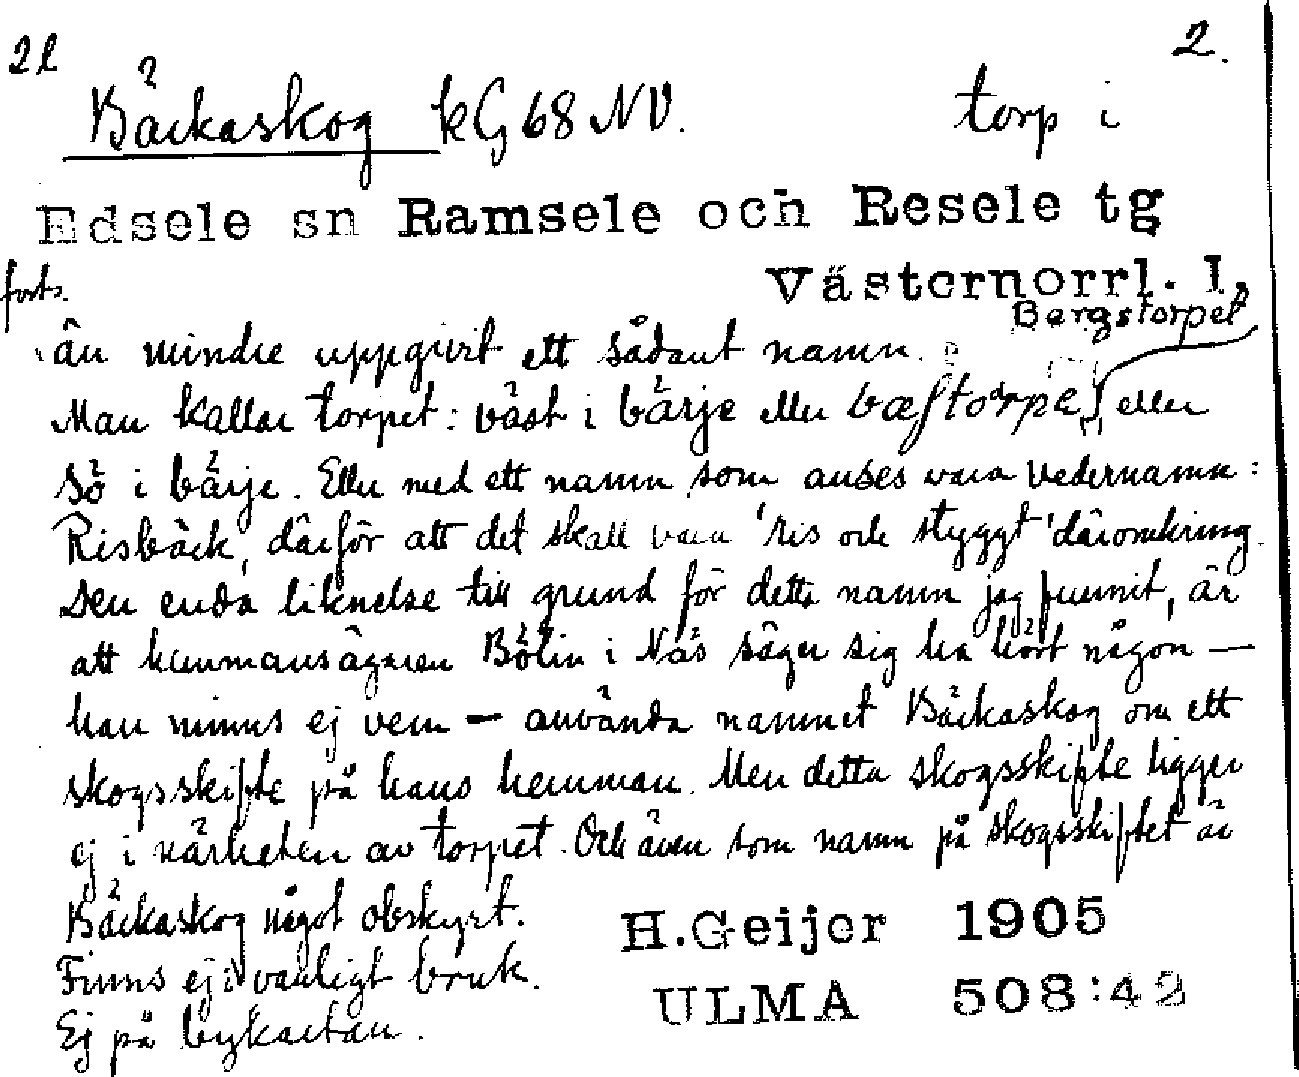 2l 2.
Bäckaskog kG 68 NV. torp i
Edsele sn Ramsele och Resele tg
forts. Västernorrl. l.
Bergstorpet
än mindre uppgivit ett sådant namn.
Man kallar torpet: väst i bärje eller eller
sö i bärje. Eller med ett namn som anses vara vedernamn:
Risbäck, därför att det skall vara 'ris och styggt' däromkring.
Den enda liknelse till grund för detta namn jag funnit, är
att hemmansägaren Bölin i Näs säger sig ha hört någon —
han minns ej vem — använda namnet Bäckaskog om ett
skogsskifte på hans hemman. Men detta skogsskifte ligger
ej i närheten av torpet. Och även som namn på skogsskiftet är
Bäckaskog något obskyrt.
H. Geijer 1905
Finns ej i vanligt bruk.
ULMA 508:42
Ej på bykartan.